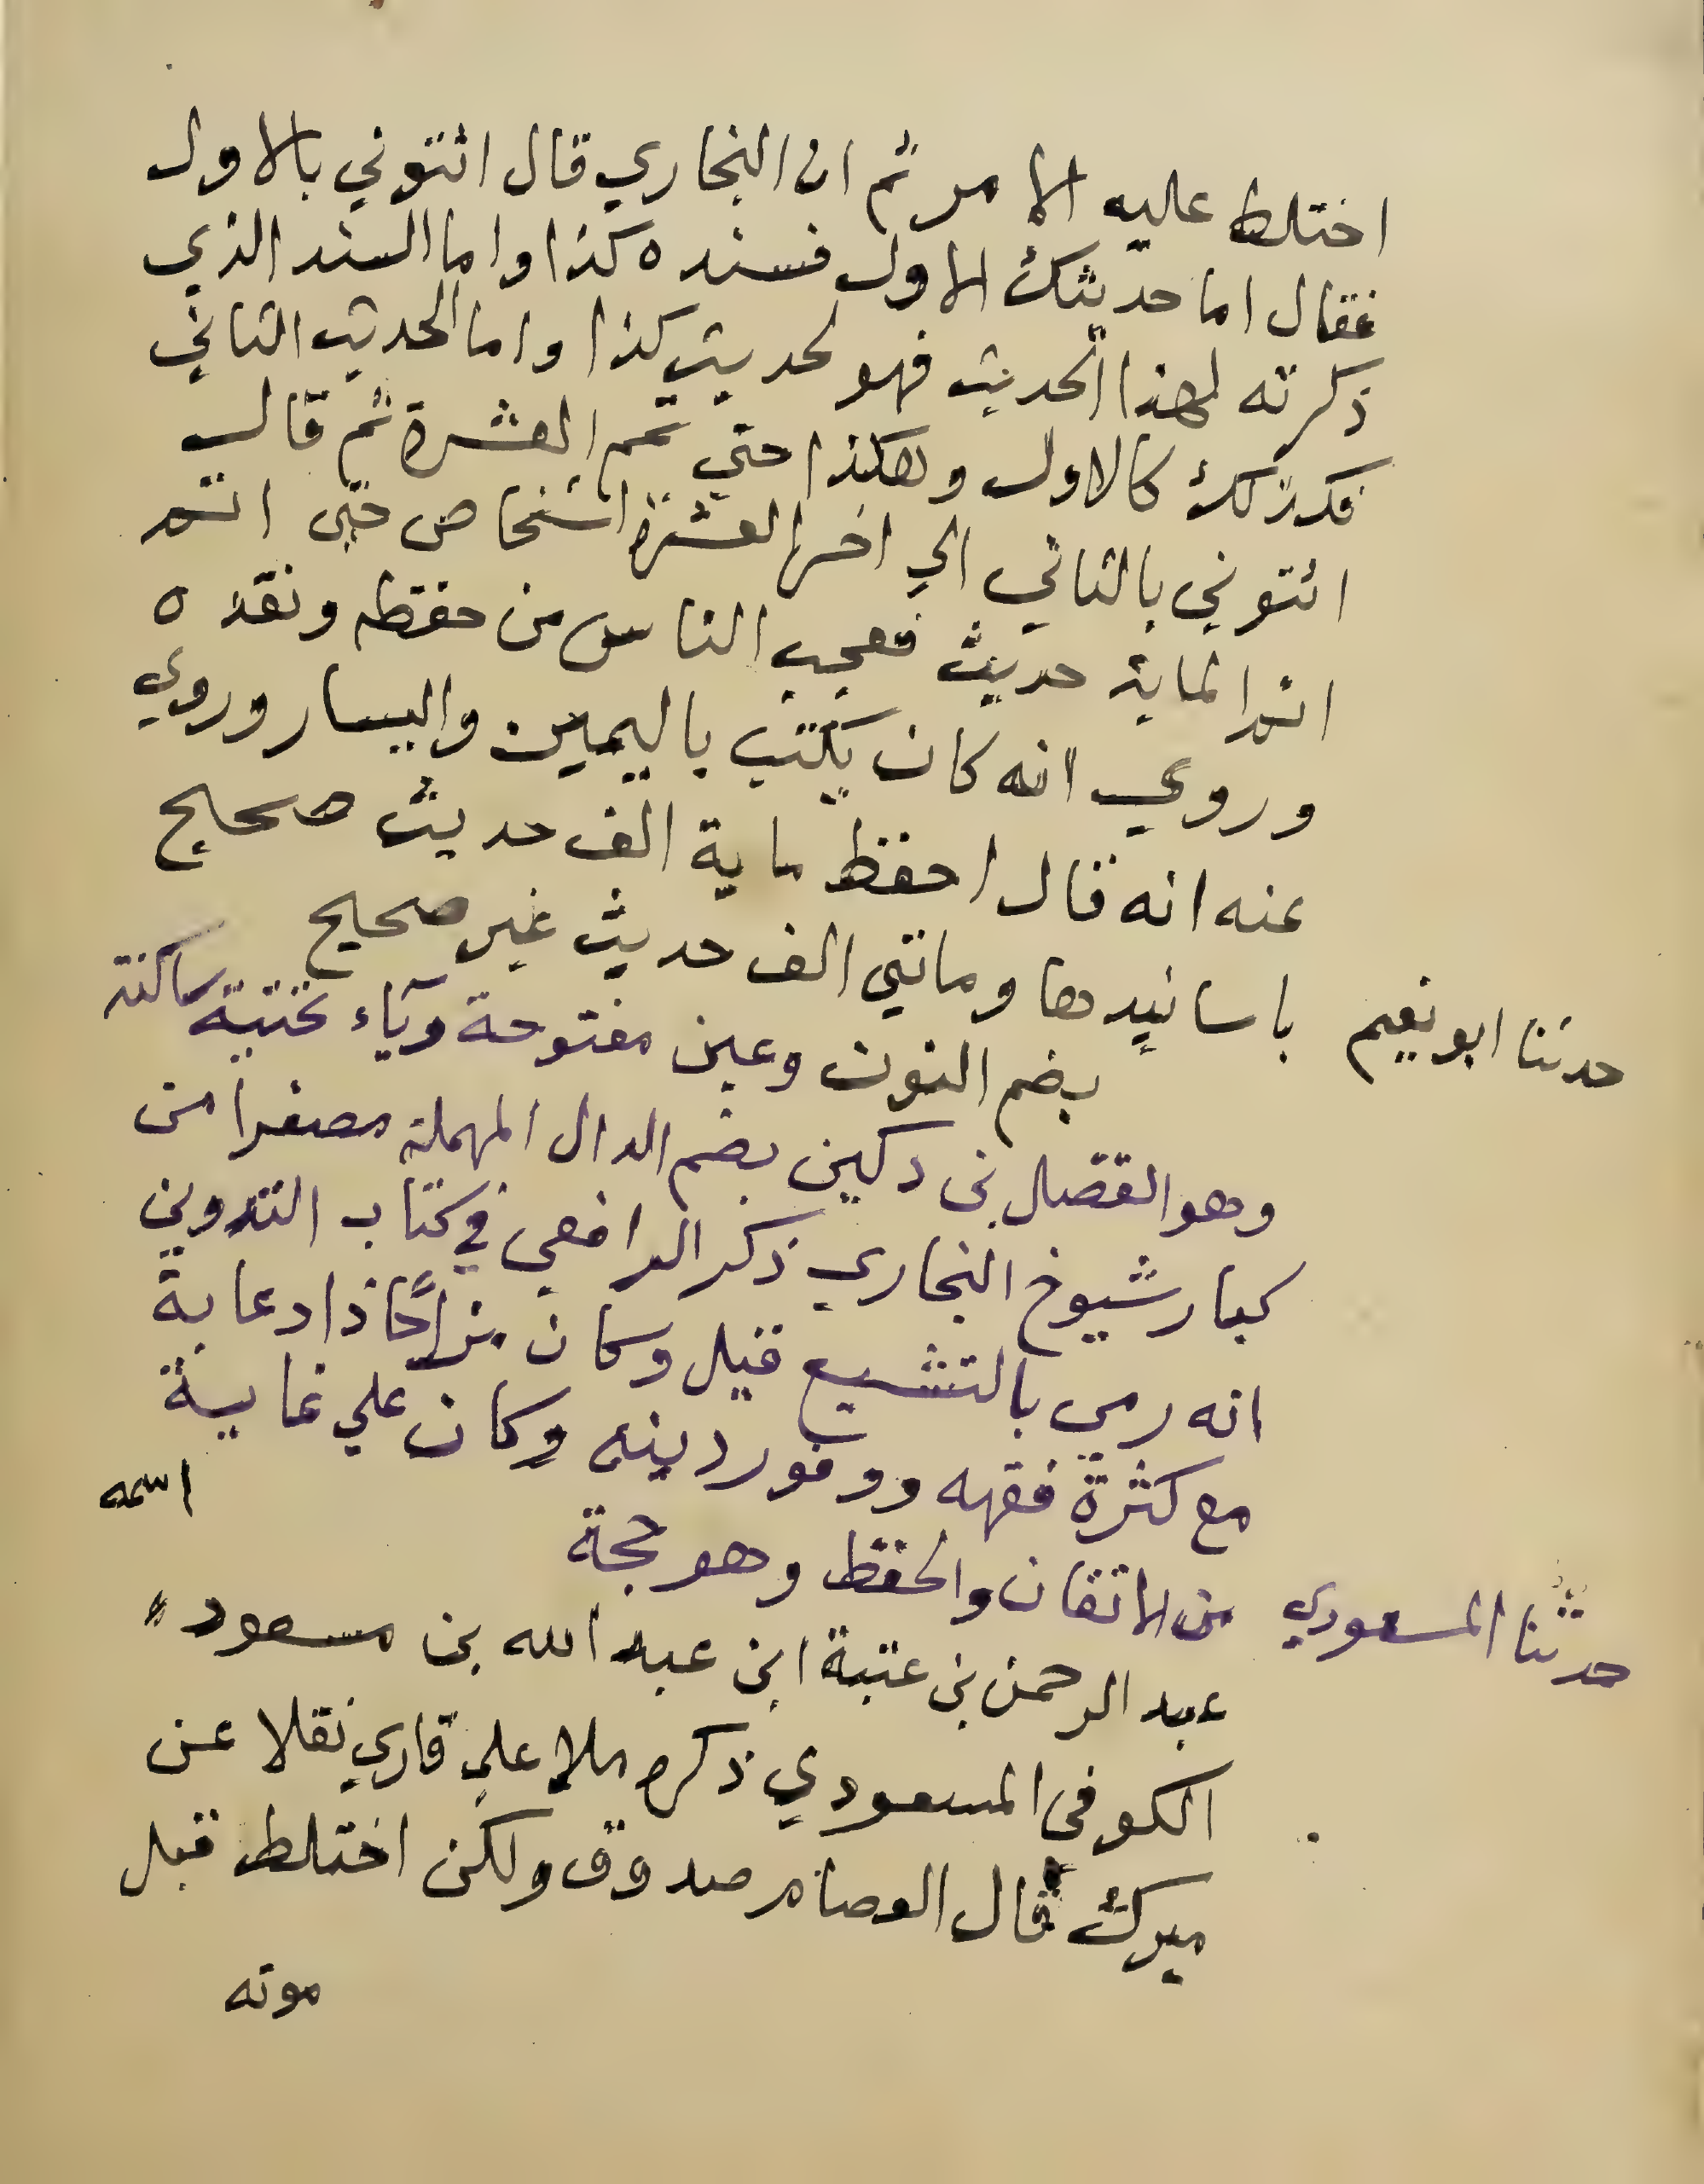 اختلط عليه الامر ثم ان البخاري قال ائتوني بالاول
فقال اما حديثك الاول فسنده كذا واما السند الذي
ذكرته لهذا الحديث فهو لحديث كذا واما الحديث الثاني
فكذلك كالاول وهكذا حتي تمم العشرة ثم قال
ائتوني بالثاني الي اخر العشرة اشخاص حتى اتم
المائة حديث فعجب الناس من حفظه ونقده
وروي انه كان يكتب باليمين واليسار وروي
عنه انه قال احفظ ماية الف حديث صحيح
باسانيدها ومائتي الف حديث غير صحيح
حدثنا ابو نعيم
بضم النون وعين مفتوحة وياء تحتية ساكنة
وهو الفضل بن دكين بضم الدال المهملة مصغرا من
كبار شيوخ البخاري ذكر الرافعي في كتاب التدوين
انه رمي بالتشيع قيل وكان مزاحا ذا دعابة
مع كثرة فقهه ووفور دينه وكان علي غاية
من الاتقان والحفظ وهو حجة
حدثنا المسعودي
اسمه
عبد الرحمن بن عتبة ابن عبد الله بن مسعود
الكوفى المسعودي ذكره ملا علي قاري نقلا عن
ميرك قال العصام صدوق ولكن اختلط قبل
موته